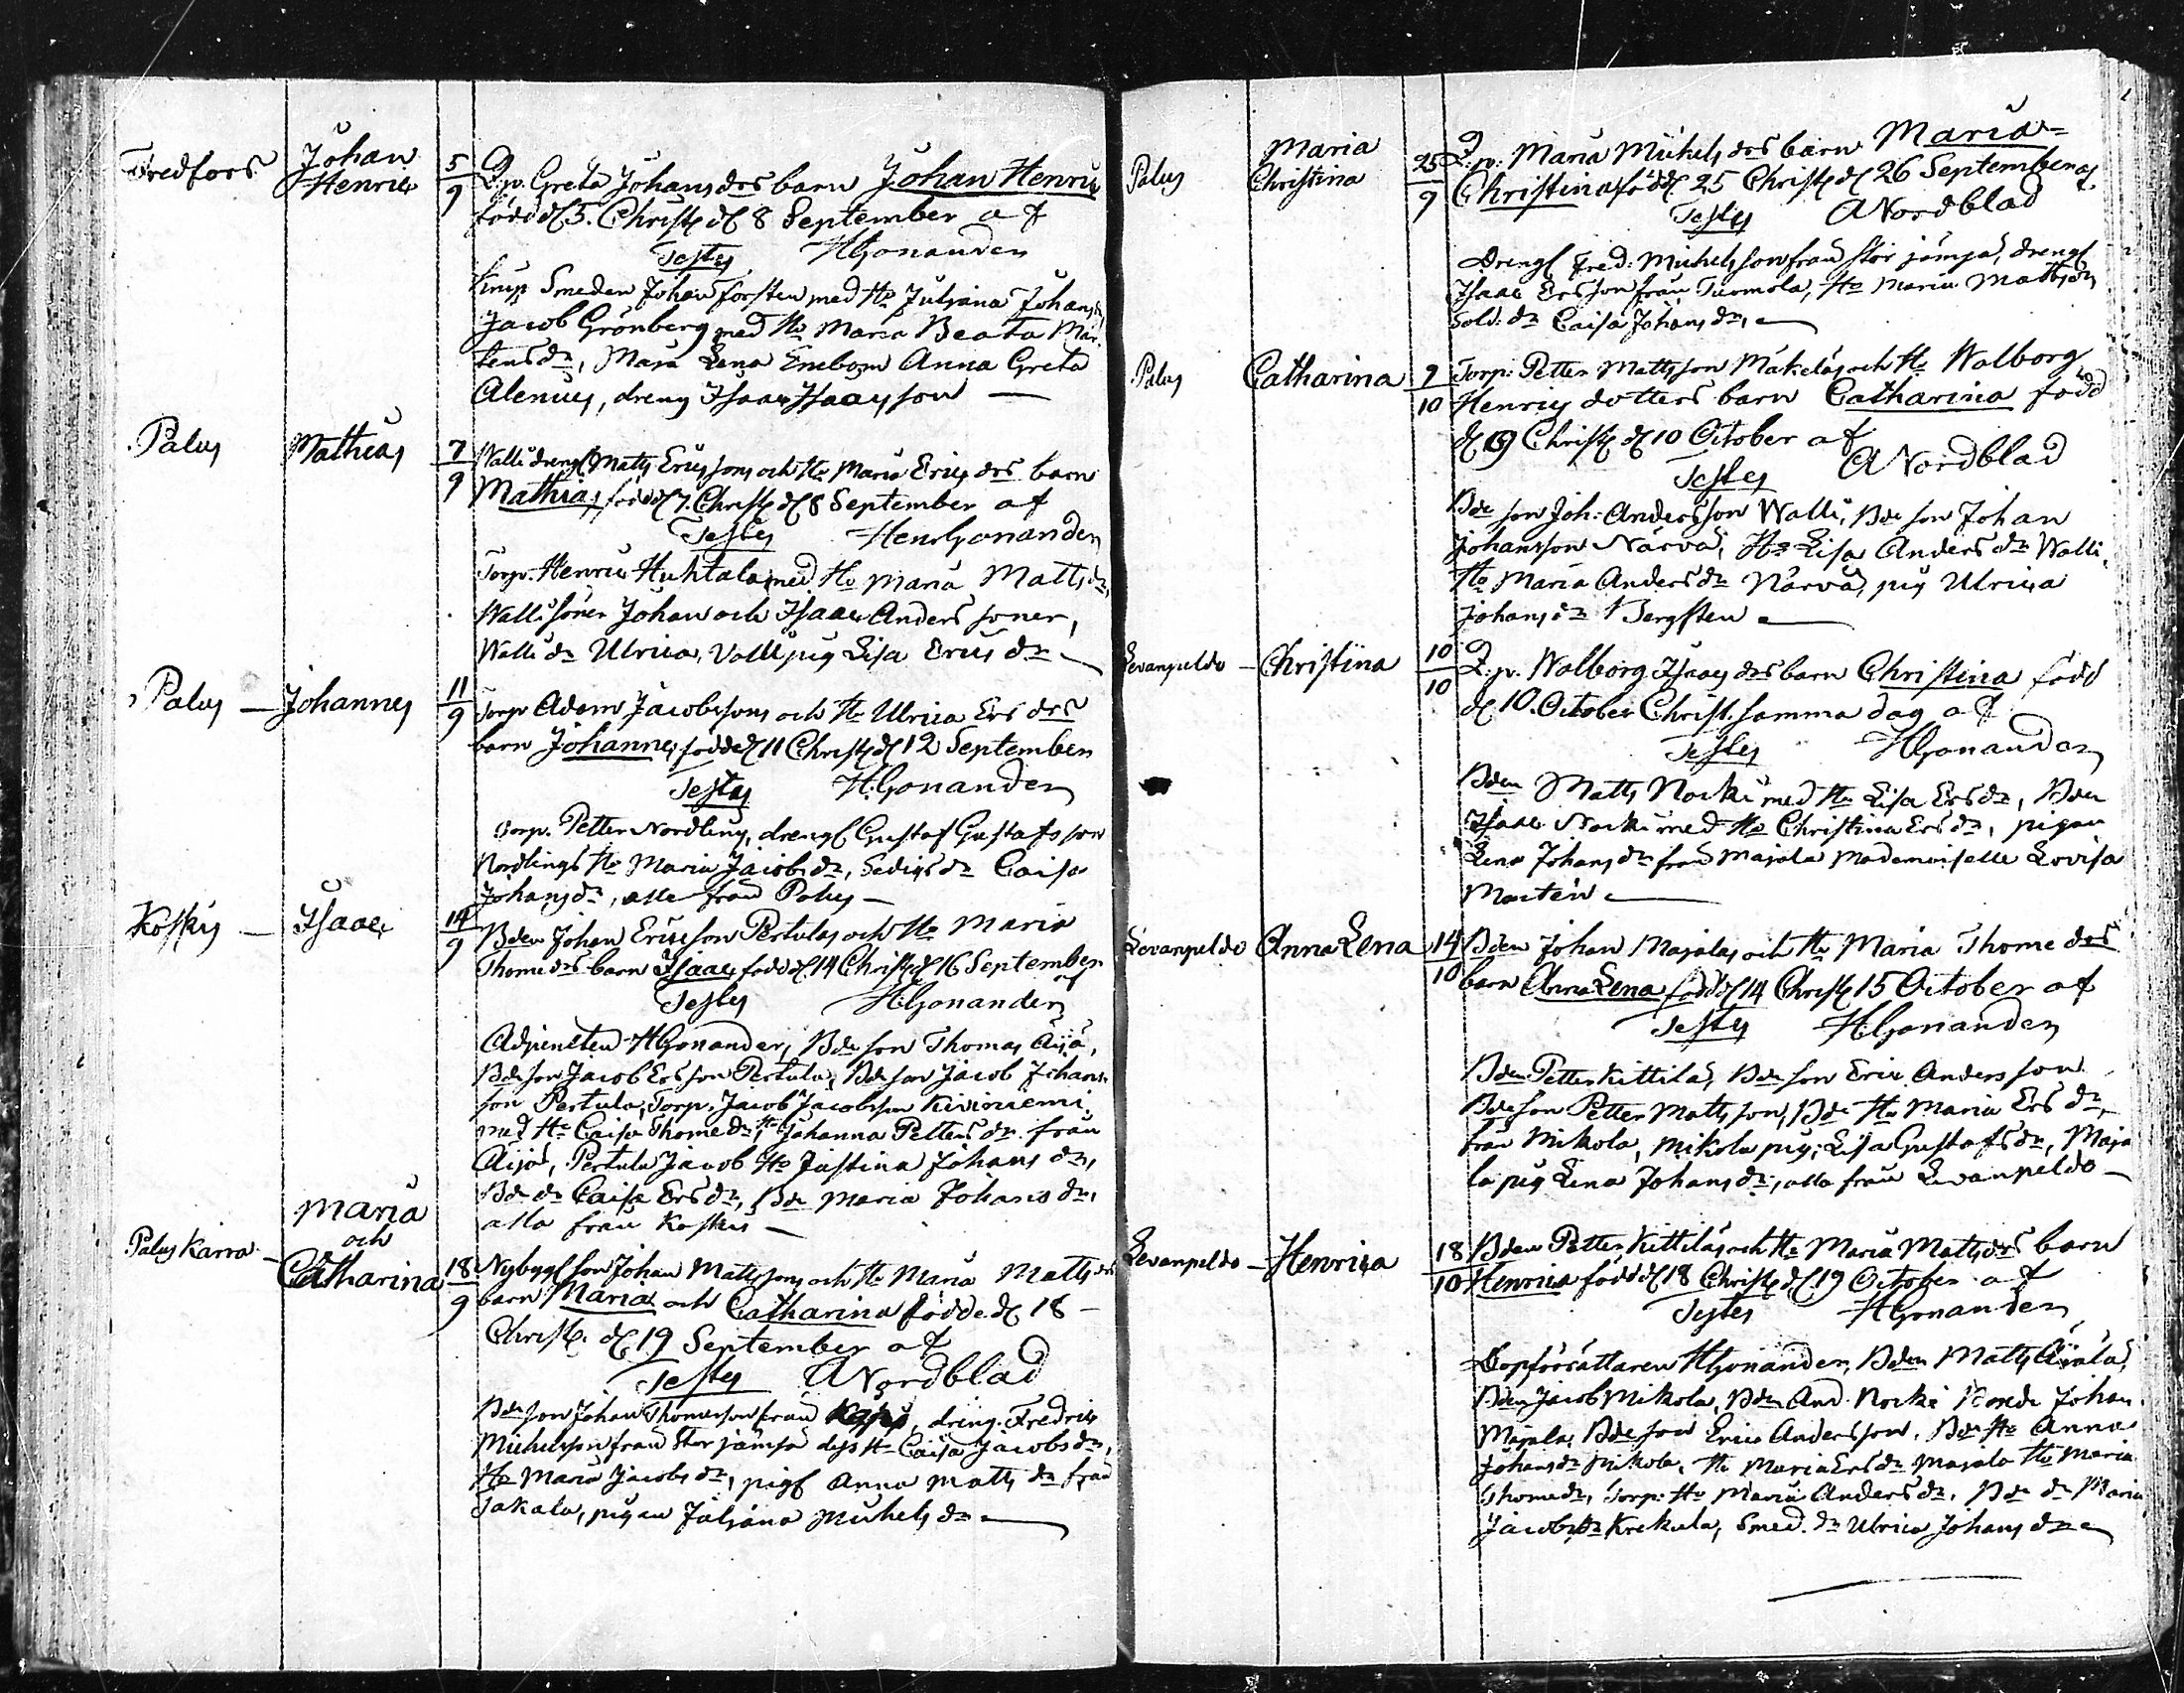 Fredfors Johan Henric 5/9 Q.p. Greta Johans drs barn Johan Henric
född d 5. Christ d 8 September af
Testes HGonander
Smeden Johan Forsten med Ho Juliana Johans
Jacob Grönberg med Ho Maria Beata Mår
tens dr, Maja Lena Enebom Anna Greta
Alenius, dreng Isaac Isaacsson
Palus Mathias 7/9 Walli drengs Matts Ericssons och Ho Maria Erics drs barn
Mathias född d 7. Christ d 8 September af
Testes Hen:Gonander
Torp. Henric Huhtala med Ho Maria Matts dr,
Walli söner Johan och Isaac Anders söner,
Walli dr Ulrica, Valli pig Lisa Erics dr
Palus Johannes 11/9 Torp Adam Jacobssons och Ho Ulrica Ers drs
barn Johannes född d 11 Christ d 12 September
Testes H:Gonander
Torp. Petter Nordling, drengs Gustaf Gustafsson
Nordlings Ho Maria Jacobs dr, Caisa
Johans dr, alla från Palus
Koskis Isaac 14/9 Bden Johan Ericsson Pertulas och Ho Maria
Thome drs barn Isaac född d 14 Christ d 16 September
af
Testes H:Gonander
Adjuncten HGonander, Bde son Thomas Äijö,
Bde son Jacob Ersson Pertula, Bde son Jacob Johans
son Pertula, Torp. Jacob Jacobsson Kiviniemi
med Ho Caisa Thome dr, Ho Johanna Petters dr från
Äijö, Pertula Jacob Ho Justina Johans dr,
Bde dr Caisa Ers dr, Bde Maria Johans dr,
alla från Koskis
Palus Karra Maria och Catharina 18/9 Nybygg son Johan Mattssons och Ho Maria Matts drs
barn Maria och Catharina födde d 18
Christ. d 19 September af
Testes ANordblad
Bde son Johan Thomasson från dreng. Fredric
Michelsson från Stor jämsä dess Ho Caisa Jacobs dr,
Ho Maria Jacobs dr, pig Anna Matts dr från
Jakala, pigan Juliana Michels dr
Palus Maria Christina 25/9 Q:p: Maria Michels drs barn Maria=
Christina född 25 Christ d 26 September af
Testes ANordblad
Dreng Fred: Michelsson från Stor jämsä, dreng
Isaac Ersson från Tuomola, Ho Maria Matts dr
Sold: dr Caisa Johans dr,
Palus Catharina 9/10 Torp: Petter Mattsson Mäkeläs och Ho Walborg
Henrics dotters barn Catharina född
d 9 Christ d 10 October af
Testes ANordblad
Bde son Joh: Andersson Walli, Bde son Johan
Johansson Närvä, Ho Lisa Anders dr Walli,
Ho Maria Anders dr Närvä, pig Ulrica
Johans dr Bergsten
Levanpeldo Christina 10/10 Q:p. Walborg Isaacs drs barn Christina född
d 10. October Christ. samma dag af
Testes HGonander
Bden Matts Nocki med Ho Lisa Ers dr, Bden
Isaac Nocki med Ho Christina Ers dr, pigan
Lena Johans dr från Majala Mademoiselle Lovisa
Martén
Levanpeldo Anna Lena 14/10 Bden Johan Majalas och Ho Maria Thome drs
barn Anna Lena född d 14 Christ 15 October af
Testes H:Gonander
Bden Petter Kittilä, Bde son Eric Andersson
Bde son Petter Mattsson, Bde Ho Maria Ers dr
från Mikola, Mikola pig, Lisa Gustafs dr, Maja
la pig Lena Johans dr, alla från Levanpeldo
Levanpeldo Henrica 18/10 Bden Petter Kittiläs och Ho Maria Matts drs barn
Henrica född d 18 Christ d. 19 October af
Testes HGonander
HGonander, Bden Matts Äijälä,
Bden Jacob Mikola, Bden And. Nocki Johan
Majala, Bde son Eric Andersson, Bde Ho Anna
Johans dr Mikola, Ho Maria Ers dr Majala Ho Maria
Thome dr, Torp: Ho Maria Anders dr, Bde dr Maria
Jacobs dr Krekula, Smed. dr Ulrica Johans dr